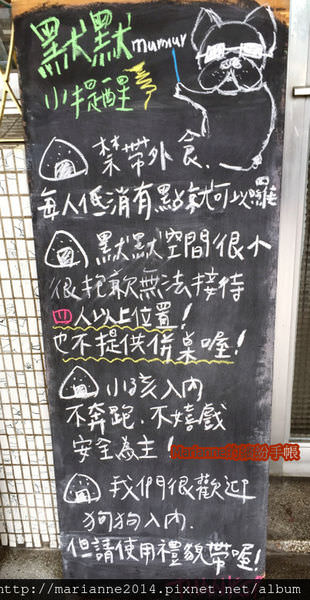 默默 murmur
小提醒
禁帶外食.
每人低消有點就可以囉
默默空間很小
很抱歉無法接待
四人以上位置!
也不提供併桌喔!
小孩入內
不奔跑.不嬉戲
安全為主!
我們很歡迎
狗狗入內.
但請使用禮貌帶喔!
http://marianne2014.pixnet.net/album